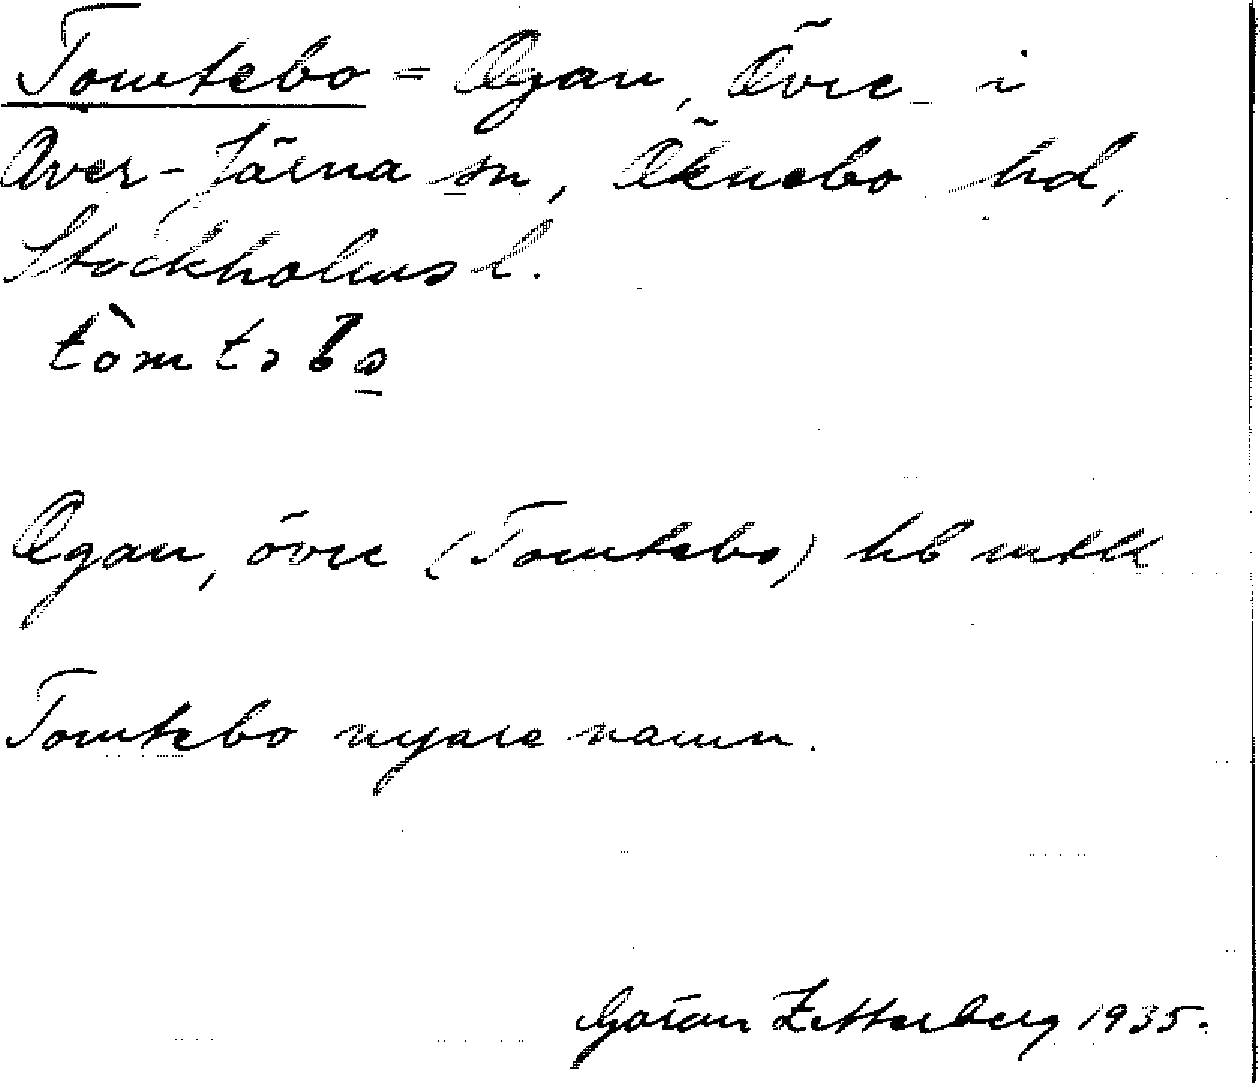 Tomtebo = Ogan, Övre i
Över-Järna sn, Öknebo hd,
Stockholms l.
tòmtəbo̱
Ogan, övre (Tomtebo) hb mtlk
Tomtebo nyare namn.
Göran Zetterberg 1935.